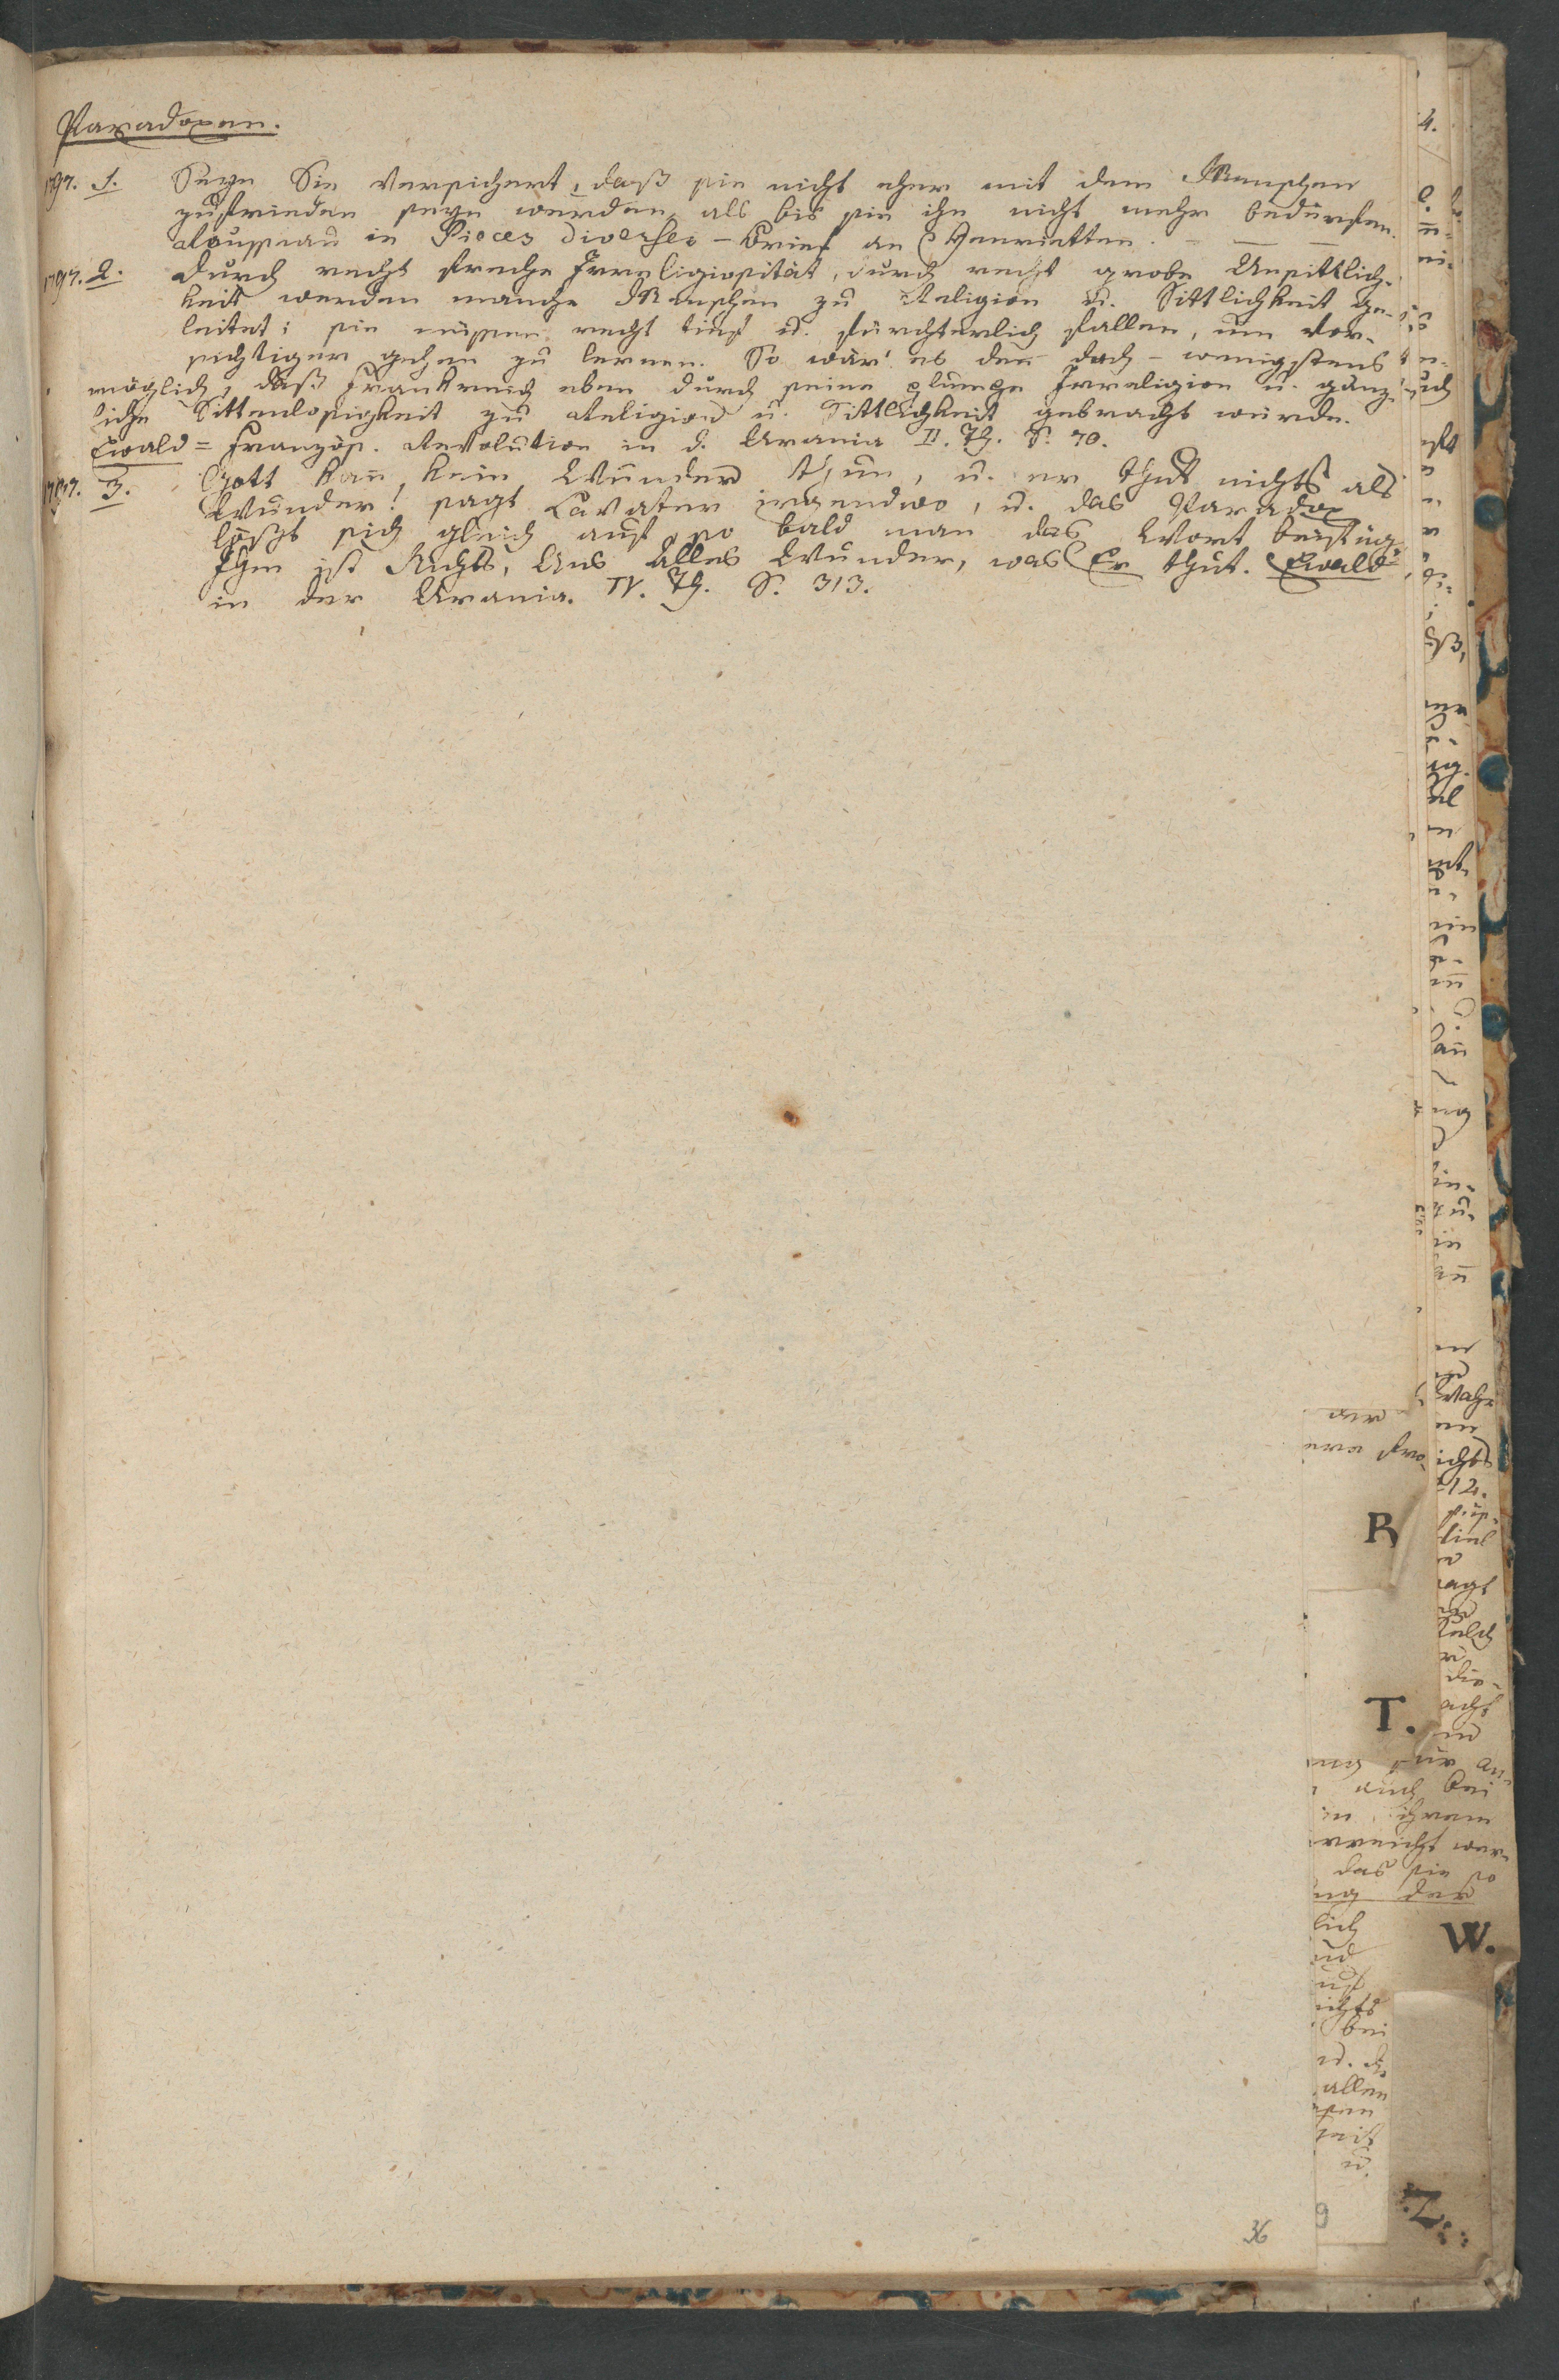 Paradoxen.
1797. 1. Seyn Sie versichert, daß sie nicht eher mit dem Menschen
zufrieden seyn werden, als bis sie ihn nicht mehr bedürfen.
Rousseau in Pieces diverses - Brief an Henrietten. - — —
1797. 2. Durch recht freche Irreligiosität, durch recht grobe Unsittlich-
keit werden manche Menschen zu Religion u. Sittlichkeit ge-
leitet; sie müssen recht tief u. fürchterlich fallen, um vor-
sichtiger gehen zu lernen. So wär' es den doch - wenigstens
möglich, daß Frankreich eben durch seine plumpe Irreligion u. gänz-
liche Sittenlosigkeit zu Religion u. Sittlichkeit gebracht würde.
Ewald = Französ. Revolution in d. Urania II. Th. S. 70.
1797. 3. Gott kan̄ kein Wunder thun, u. er thut nichts als
Wunder! sagt Lavater irgendwo, u. das Paradox
lößt sich gleich auf so bald man das Wort beifüg
Ihm ist Nichts, Uns Alles Wunder, was Er thut. Ewald
in der Urania. IV. Th. S. 313.
R
T.
auch bei
in ihrem
das sie so
der
W.
allen
u.
Z.
36
9